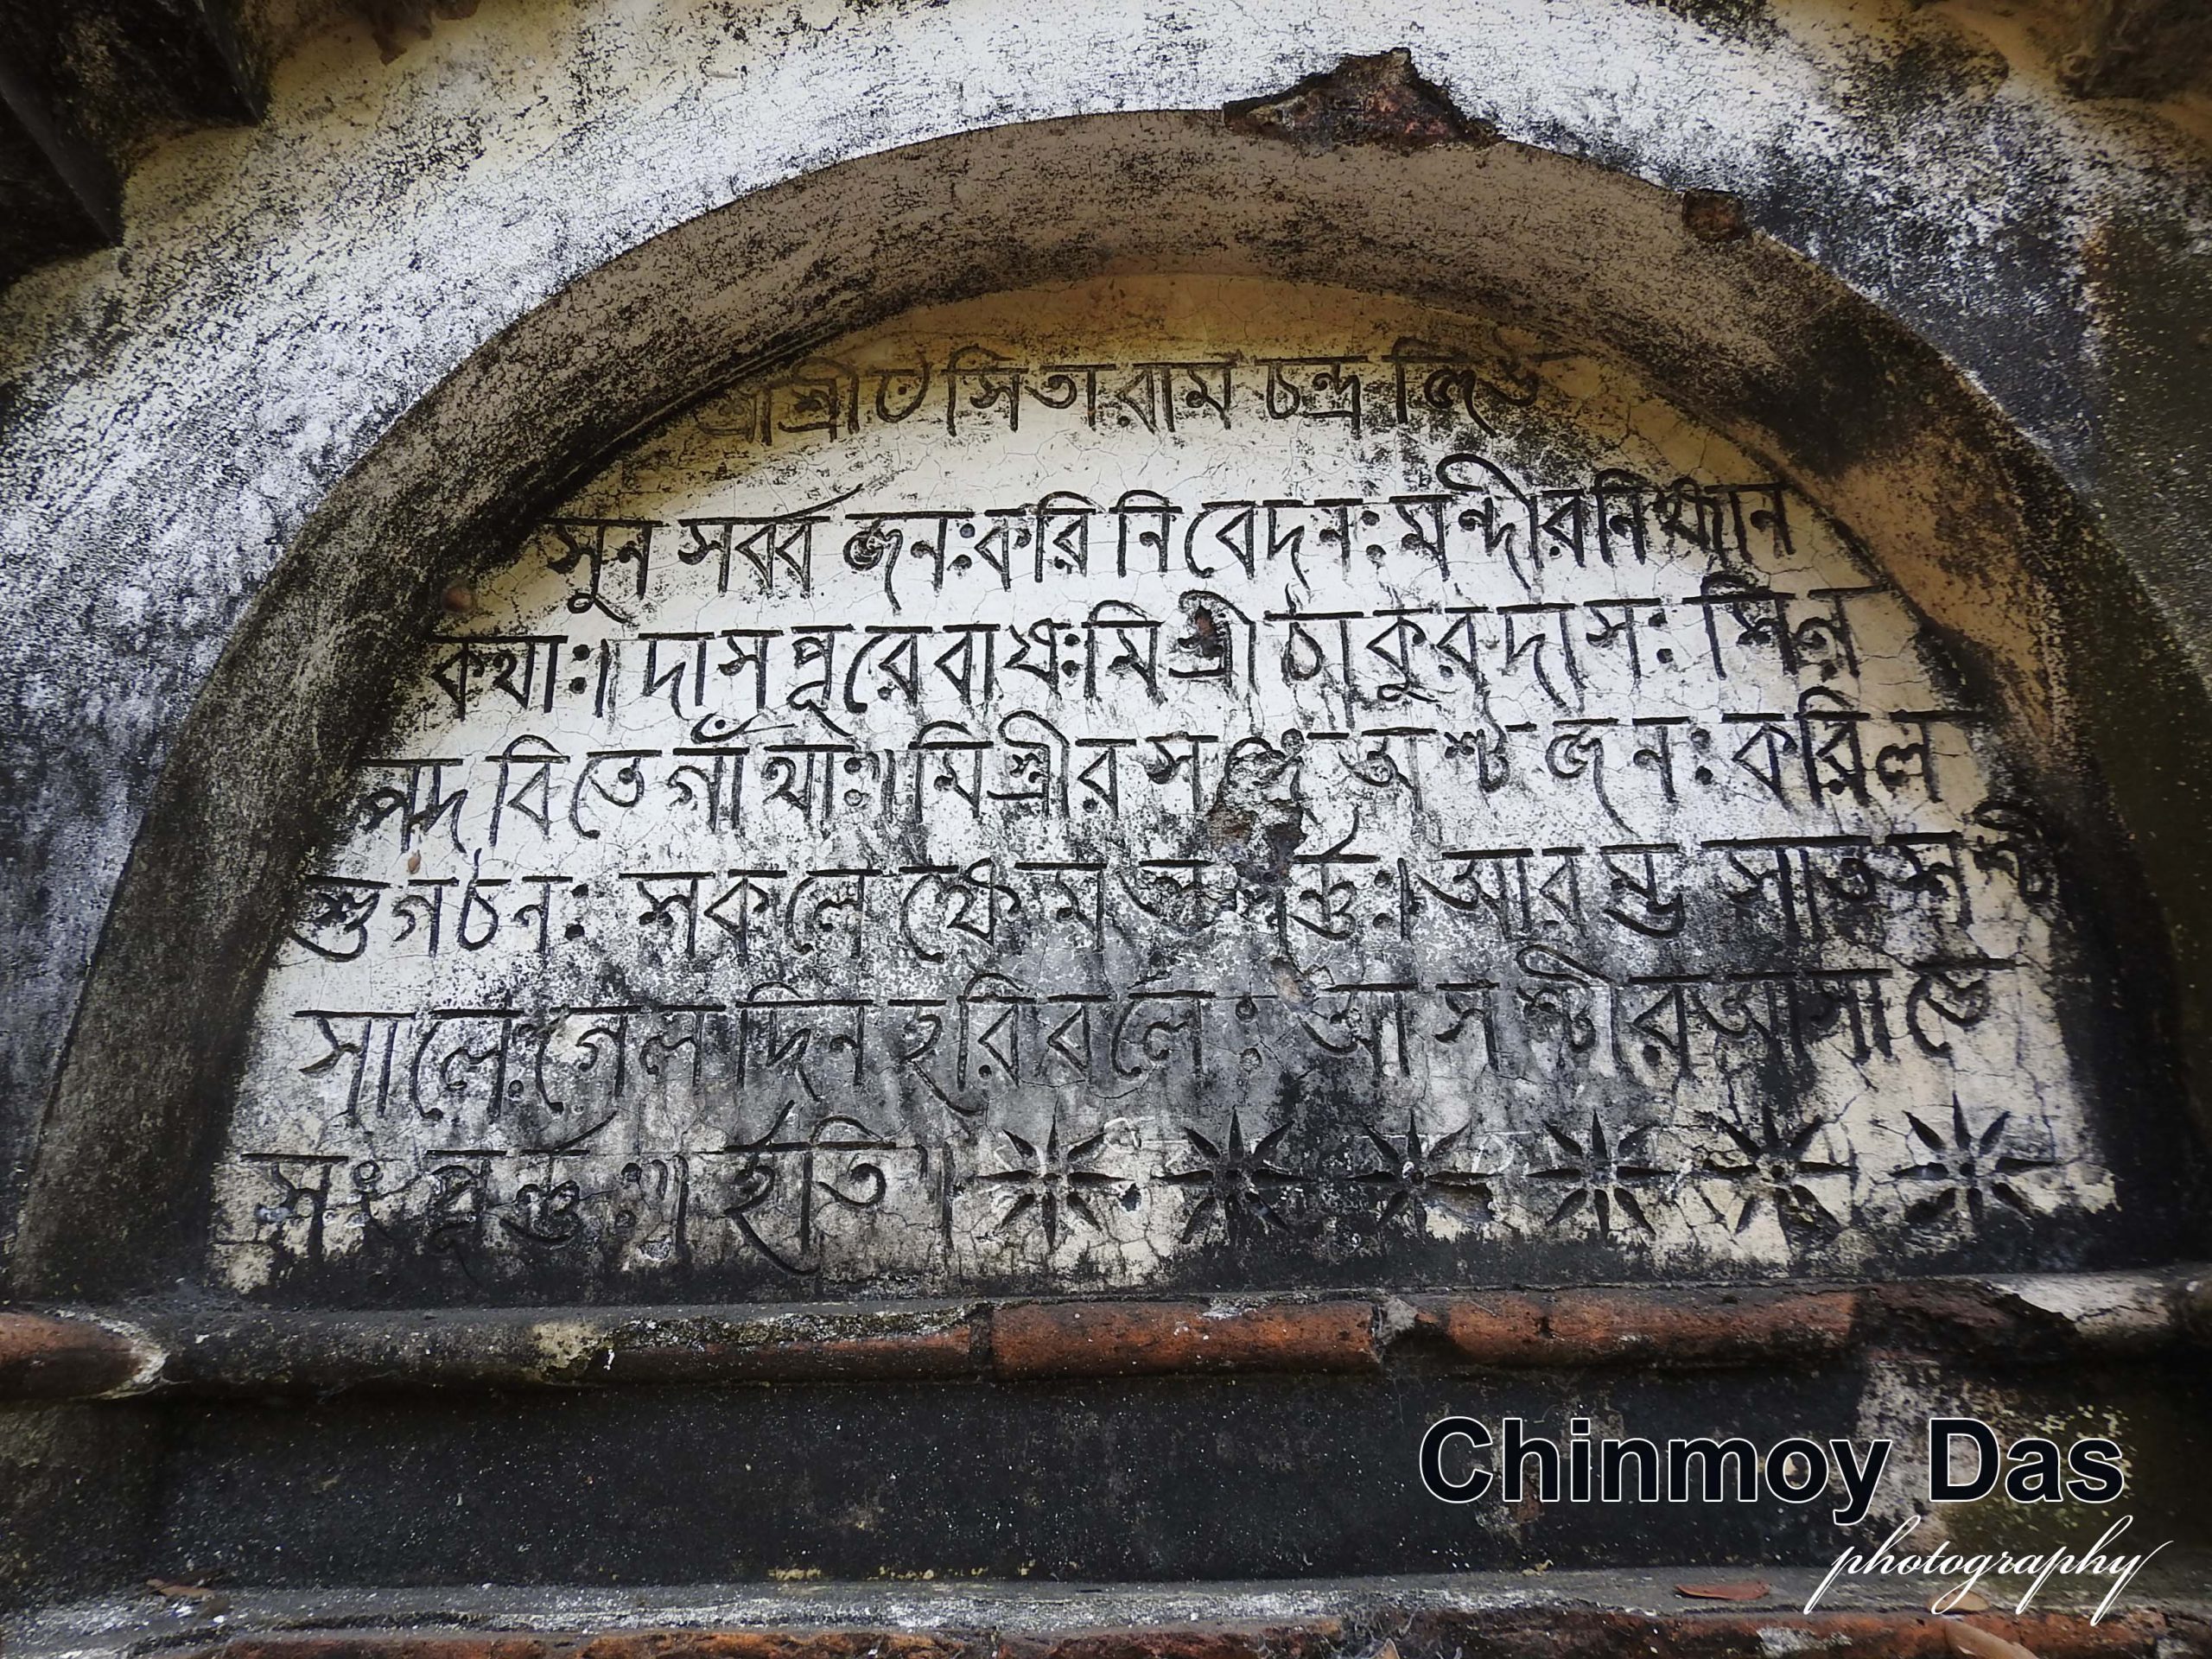 শ্রীশ্রীঁ সিতারাম চন্দ্র জিউ
সুন সর্ব্ব জন:করি নিবেদন: মন্দীর নির্ম্মান
কথা:৷ দাসপূরে বাস:মিস্ত্রী ঠাকুরদাস: শিল
পদবিতে গাঁথা:৷ মিস্ত্রীর সঙ্গে অষ্ট জন: করিল
গঠন: সকলে আরম্ভ সাতসষ্টী
সালে:গেল দিন হরি বলে: আসষ্টীর আসাড়ে
সংপূর্ন্ন:৷ ইতি৷
Chinmoy Das
photography